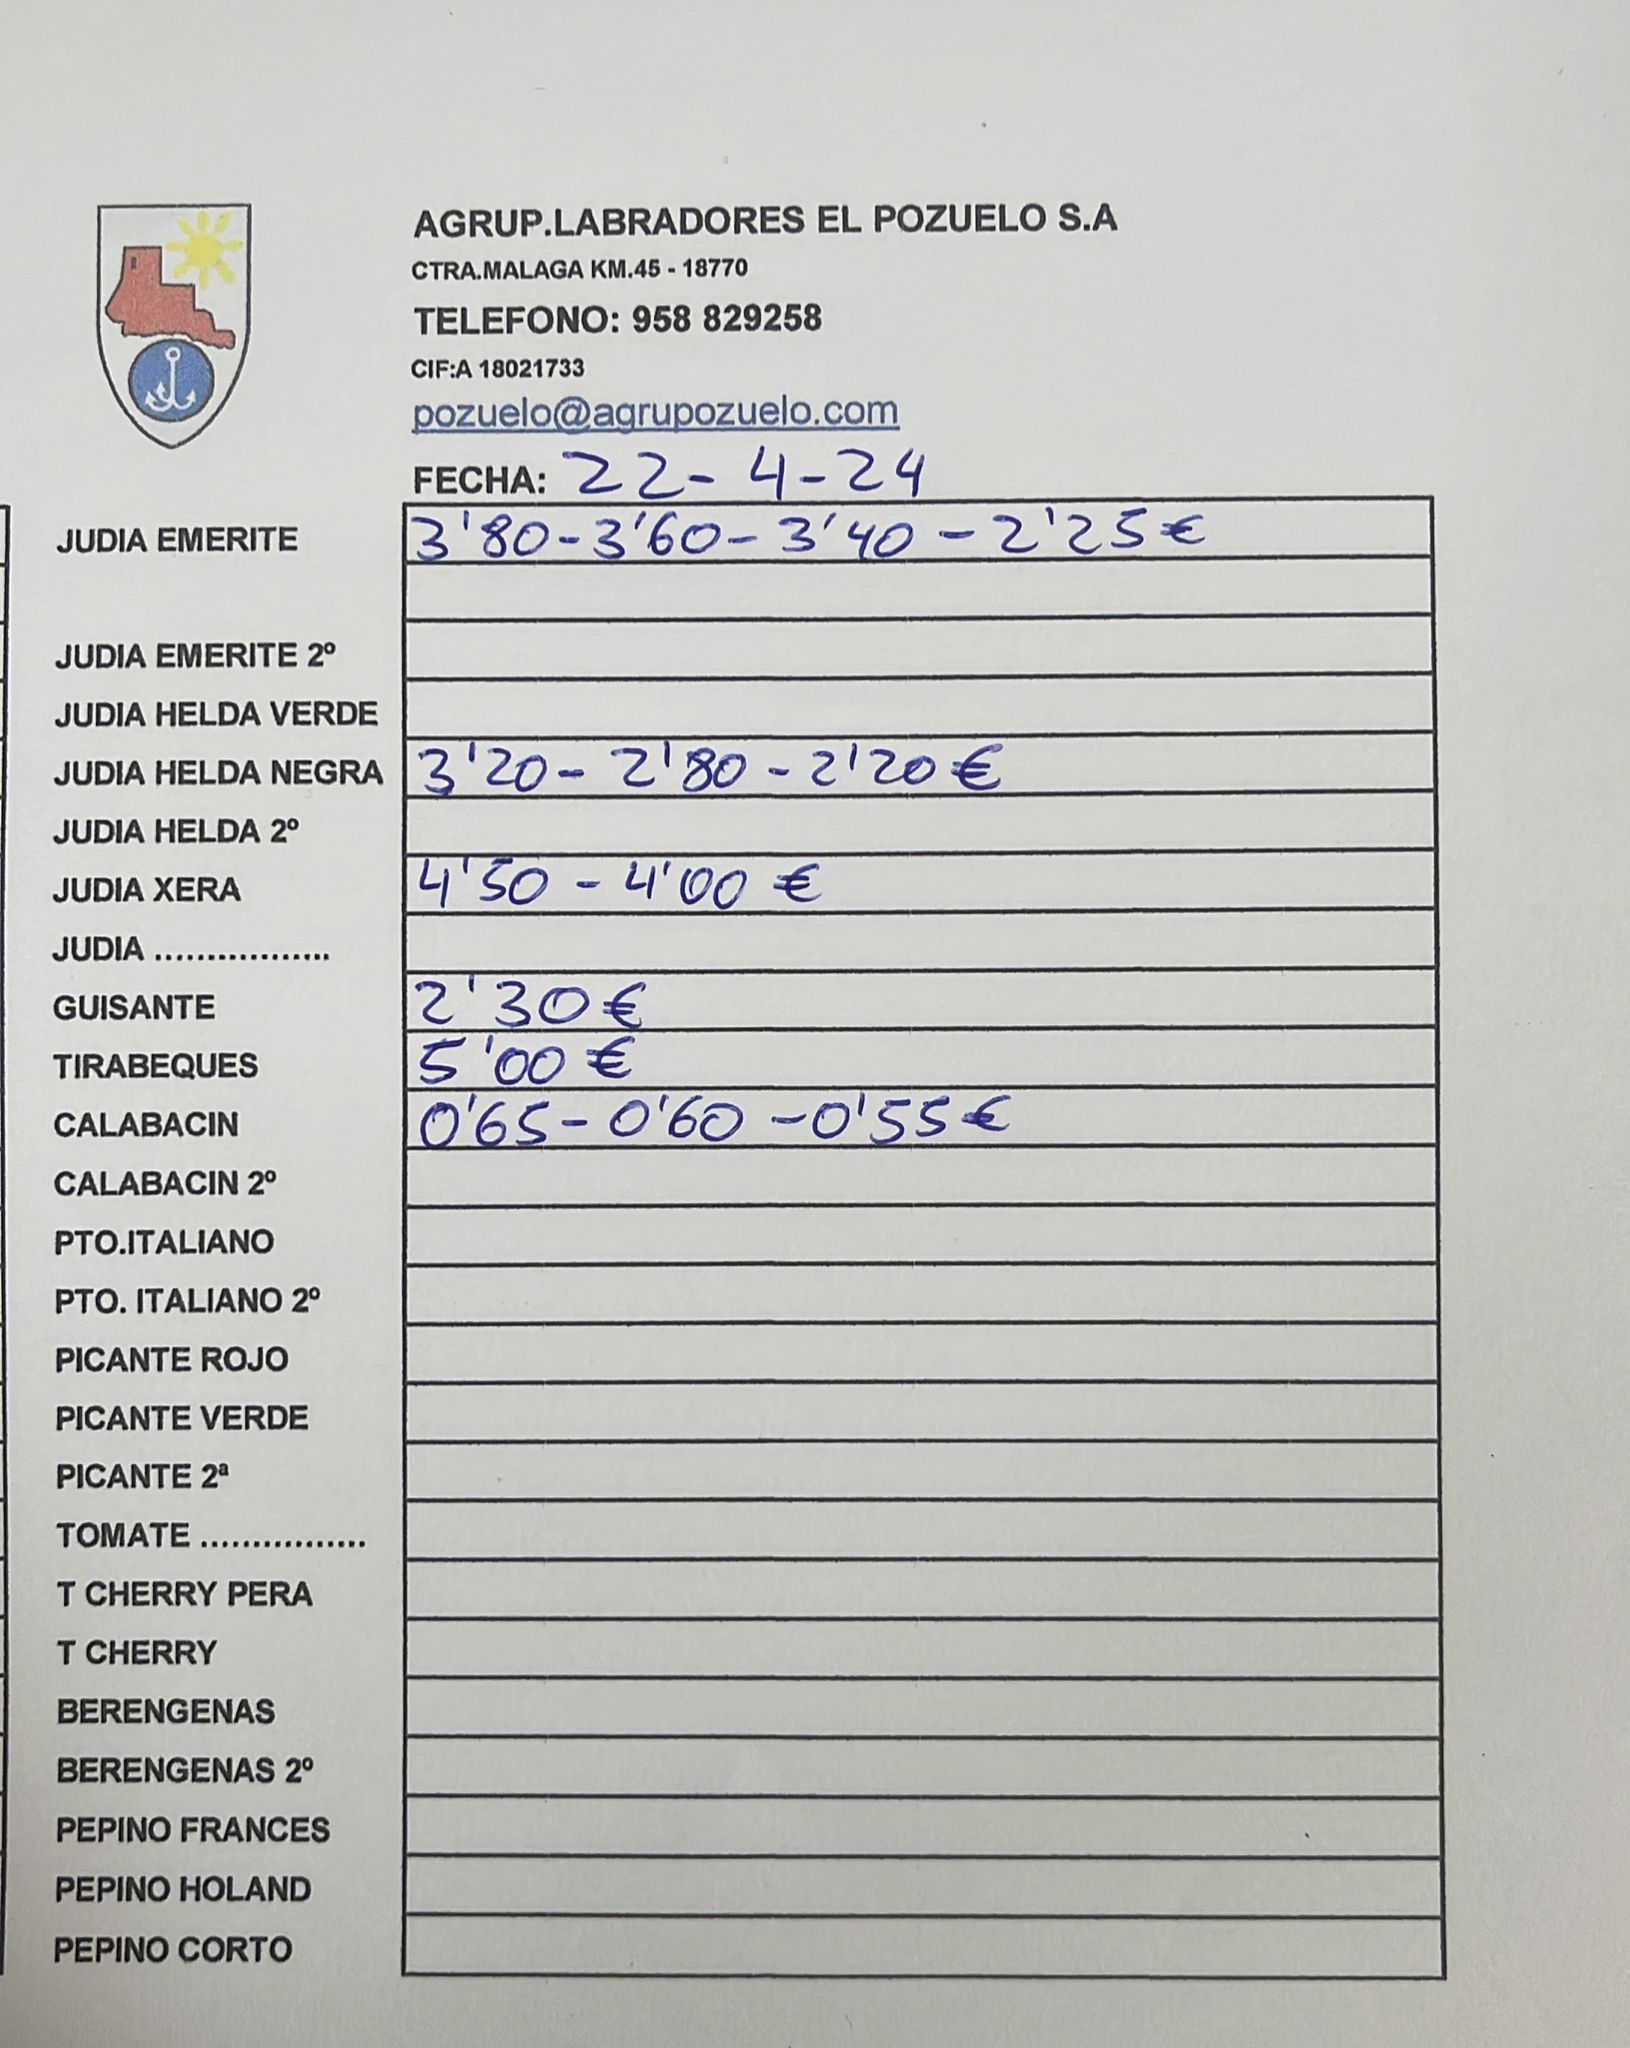 AGRUP.LABRADORES EL POZUELO S.A
CTRA.MALAGA KM.45 - 18770
TELEFONO: 958 829258
CIF:A 18021733
pozuelo@agrupozuelo.com
FECHA: 22-4-24
JUDIA EMERITE 3'80-3'60-3'40-2'25€
JUDIA EMERITE 2º
JUDIA HELDA VERDE
JUDIA HELDA NEGRA 3'20-2'80-2'20€
JUDIA HELDA 2º
JUDIA XERA 4'50-4'00 €
JUDIA .................
GUISANTE 2'30€
TIRABEQUES 5'00 €
CALABACIN 0'65-0'60-0'55€
CALABACIN 2º
PTO.ITALIANO
PTO. ITALIANO 2º
PICANTE ROJO
PICANTE VERDE
PICANTE 2ª
TOMATE ................
T CHERRY PERA
T CHERRY
BERENGENAS
BERENGENAS 2º
PEPINO FRANCES
PEPINO HOLAND
PEPINO CORTO